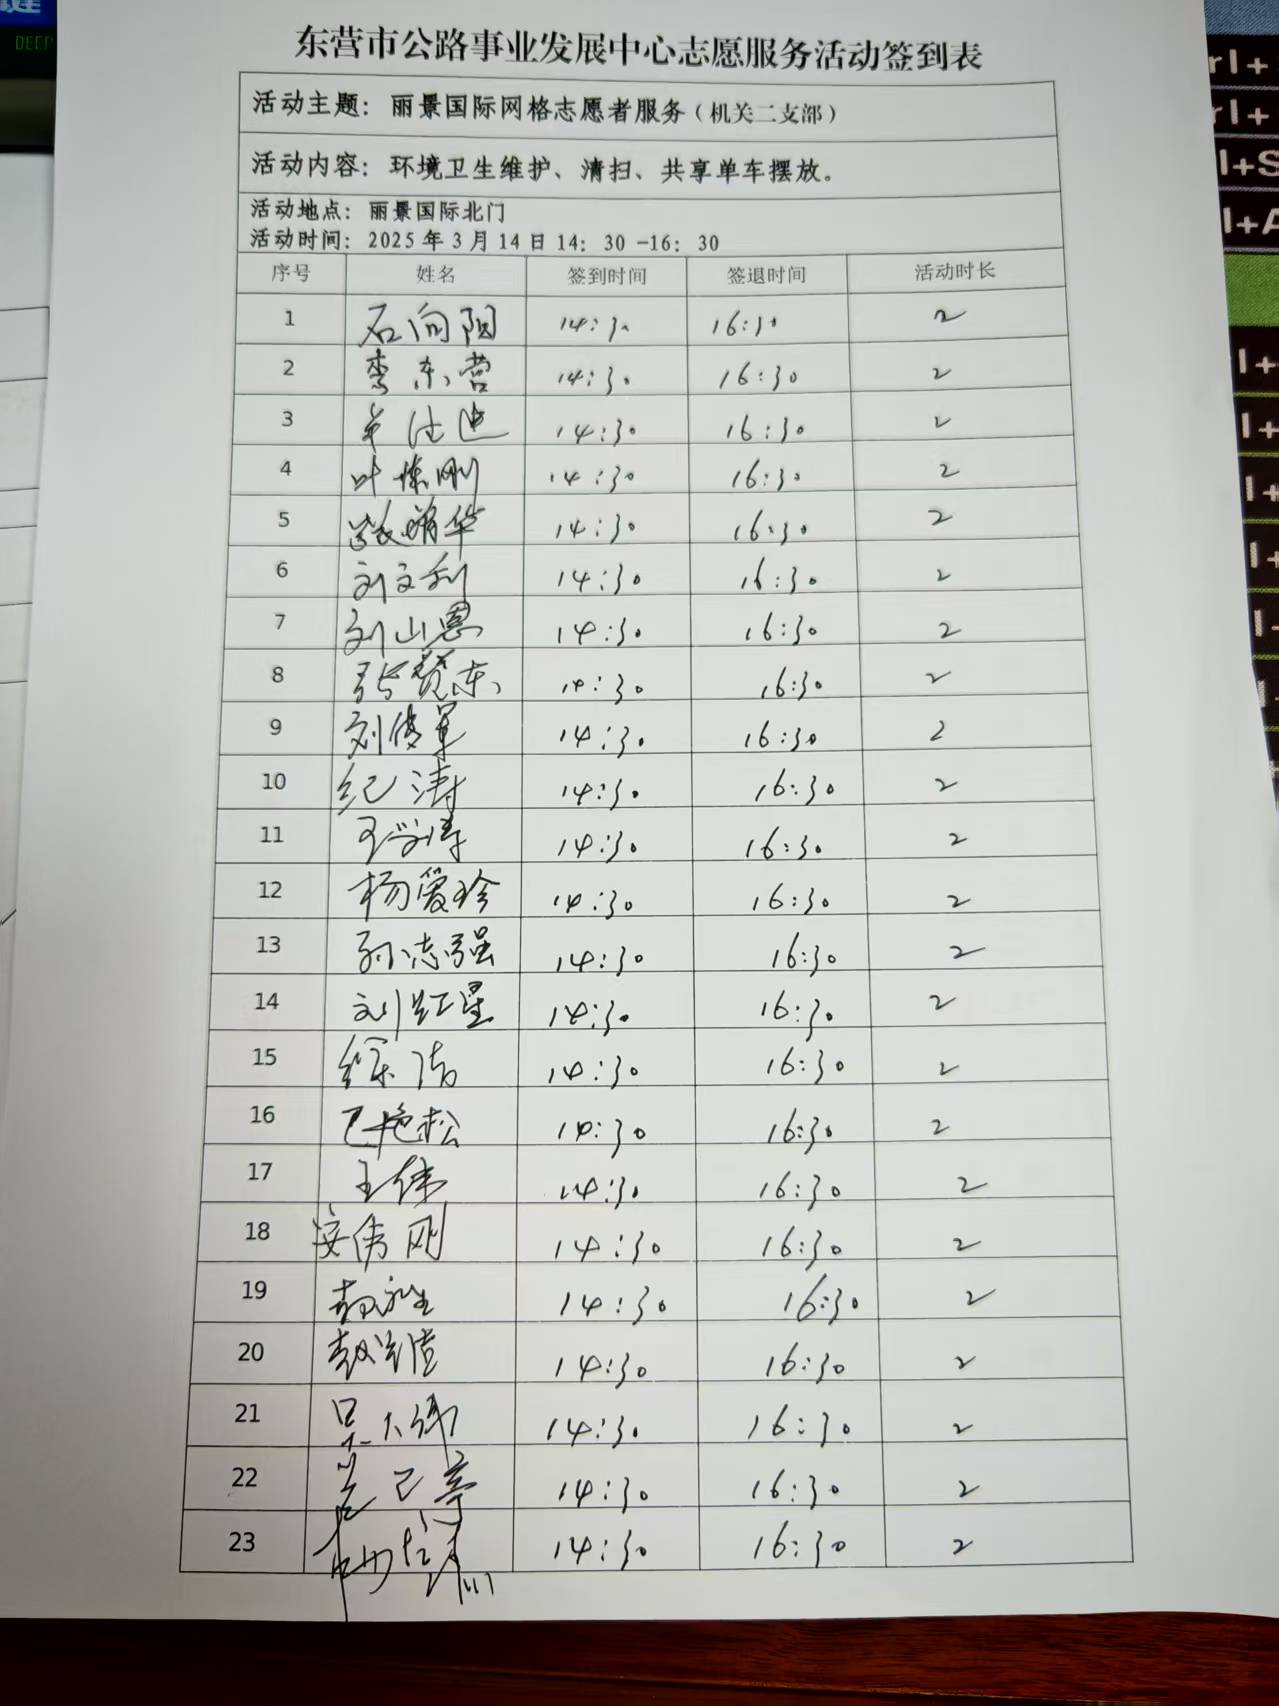 DEEP
东营市公路事业发展中心志愿服务活动签到表
活动主题：丽景国际网格志愿者服务（机关二支部）
活动内容：环境卫生维护、清扫、共享单车摆放。
活动地点：丽景国际北门
活动时间：2025年3月14日14：30-16：30
序号 姓名 签到时间 签退时间 活动时长
1 石向阳 14:30 16:30 2
2 李东营 14:30 16:30 2
3 14:30 16:30 2
4 14:30 16:30 2
5 14:30 16:30 2
6 刘文利 14:30 16:30 2
7 刘山恩 14:30 16:30 2
8 张赞东 14:30 16:30 2
9 刘俊军 14:30 16:30 2
10 纪涛 14:30 16:30 2
11 王学涛 14:30 16:30 2
12 杨爱珍 14:30 16:30 2
13 孙志强 14:30 16:30 2
14 刘红星 14:30 16:30 2
15 徐洁 14:30 16:30 2
16 巴艳松 14:30 16:30 2
17 王伟 14:30 16:30 2
18 安伟刚 14:30 16:30 2
19 14:30 16:30 2
20 14:30 16:30 2
21 吴大伟 14:30 16:30 2
22 14:30 16:30 2
23 14:30 16:30 2